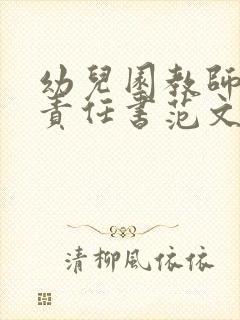 幼兒園教師
責任書范文
清柳風依依